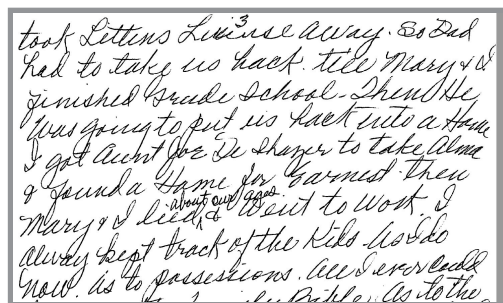 3
took Lettens License away. So Dad
had to take us back. till Mary & I
finished Grade School - Then He
Was going to put us back into a Home
I got Aunt Joe De Shazer to take Alma
& found a Home for Earnest. then
about our ages
Mary & I lied, & Went to Work. I
alway kept track of the Kids. As I do
Now. as to possessions. All I ever Could
Bible. As to the